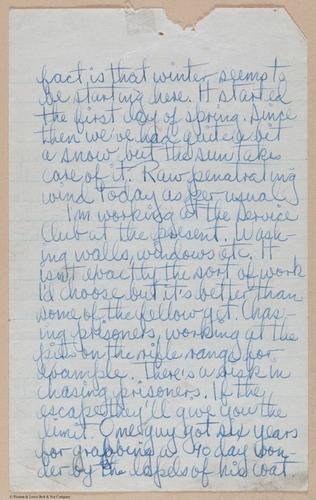 fact is that winter seems to
be starting here. It started
the first day of spring. Since
then we've had quite a bit
a snow but the sun takes
care of it. Raw penatrating
wind today as per usual.
I'm working at the service
Club at the present. Wash-
ing walls, windows etc. It
isn't exactly the sort of work
I'd choose but it's better than
some of the fellow get. Chas-
ing prisoners, working at the
pits on the rifle range for
example. There's a risk in
chasing prisoners. If the
escape they'll give you the
limit. One guy got six years
for grabbing a 90 day won-
der by the lapels of his coat